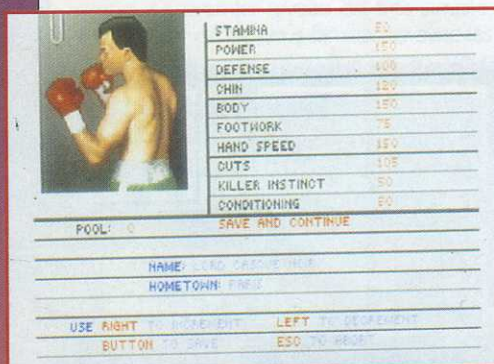 STAMINA 90
POWER 150
DEFENSE 105
CHIN 120
BODY 150
FOOTWORK 75
HAND SPEED 150
CUTS 105
KILLER INSTINCT 90
CONDITIONING 90
POOL: 0 SAVE AND CONTINUE
NAME: LORD CASQUE NOIR
HOMETOWN: PARIS
USE RIGHT TO INCREMENT LEFT TO DECREMENT
BUTTON TO SAVE ESC TO ABORT